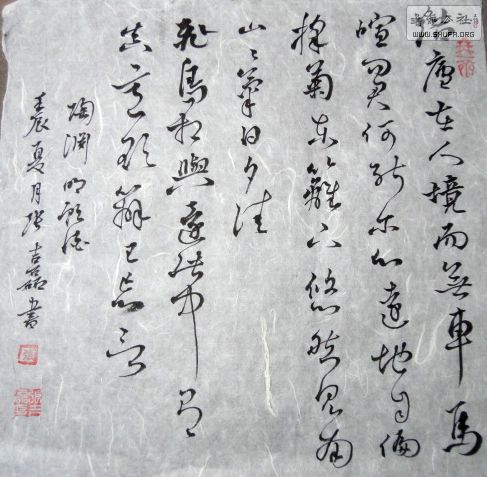 结庐在人境而无车马
喧问君何能尔心远地自偏
採菊东篱下悠然见南
山山气日夕佳
飛鳥相與還此中有
真意欲辯已忘言
陶渊明
壬辰夏月張吉磊書
WWW.SHUFA.ORG